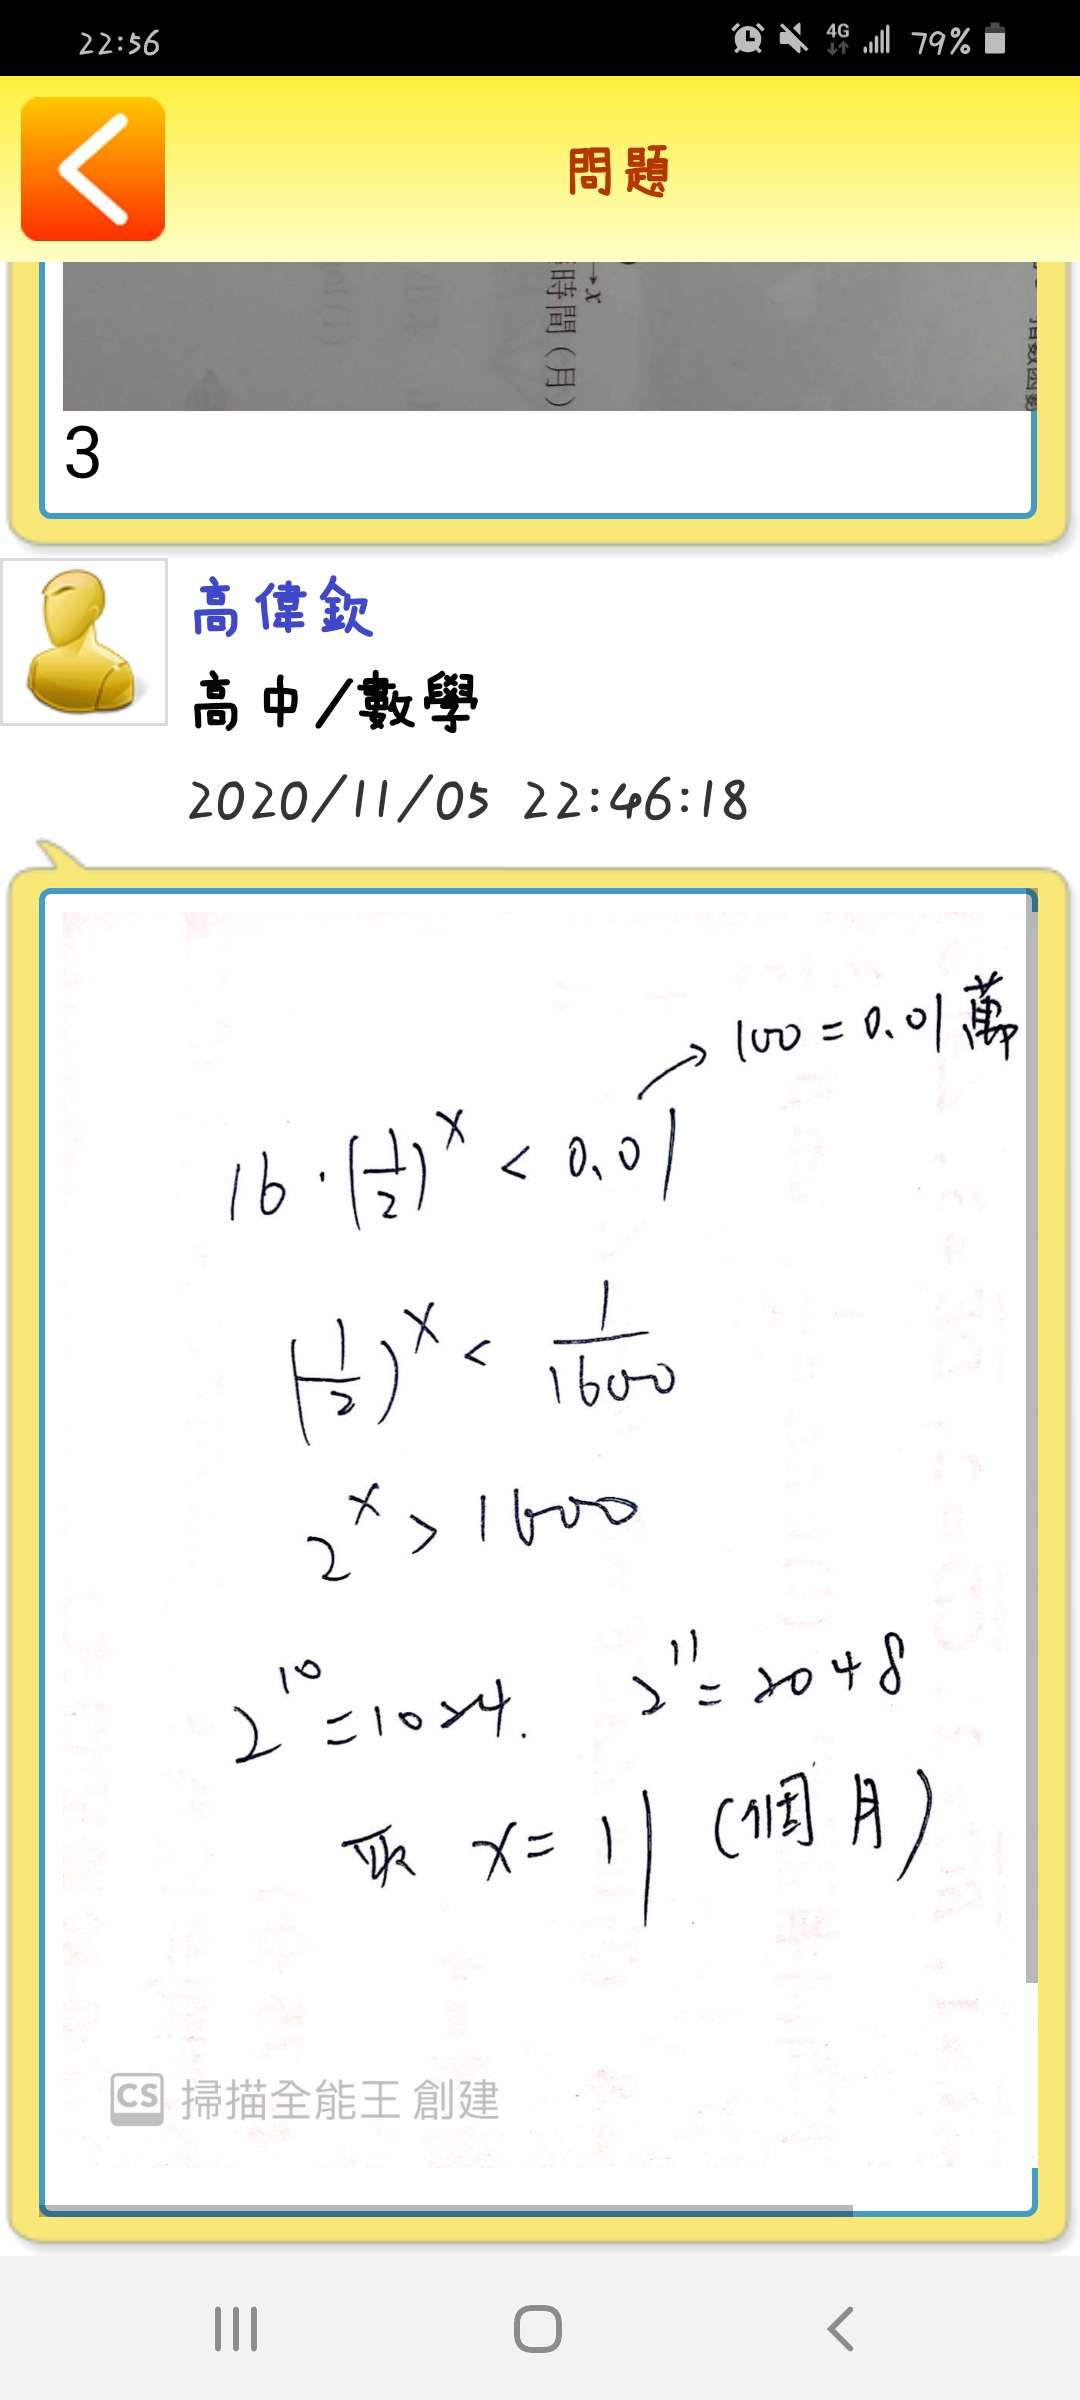 22:56 4G 79%
問題
x
時間(月)
3
高偉欽
高中/數學
2020/11/05 22:46:18
100 = 0.01萬
16 · (1/2)^x < 0.01
(1/2)^x < 1/1600
2^x > 1600
2^10 = 1024. 2^11 = 2048
取 x = 11 (個月)
CS 掃描全能王 創建